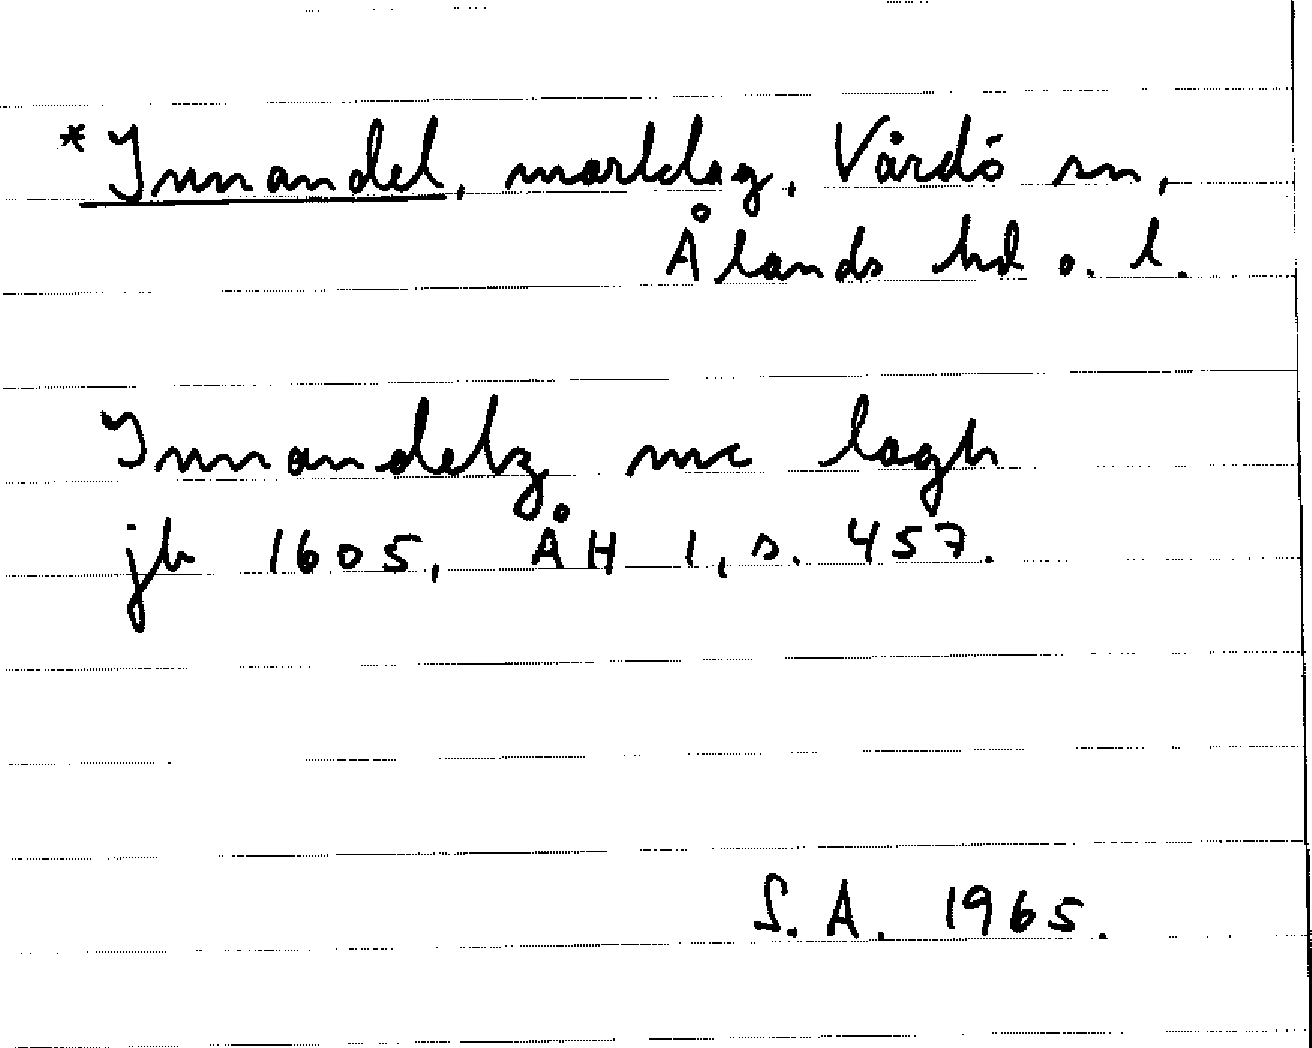 *Innandel, marklag, Vårdö sn,
Ålands hd o. l.
Innandelz mc lagh
jb 1605, ÅH 1, s. 457.
S.A. 1965.